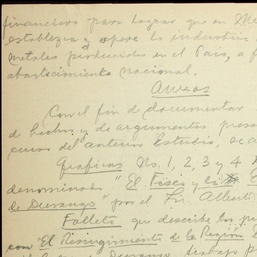 financiero para lograr que en Mé
establezca y opere la industria
metales producidos en el País, a f
abastecimiento nacional.
Anexos
Con el fin de documentar
de hechos y de argumentos pres
curso del anterior Estudio, se a
Gráficas No. 1, 2, 3 y 4
denominados "El Fisco y la E
de Durango" por el Sr. Alberto
Folleto que describe los p
con "El Resurgimiento de la Región
trabajo p